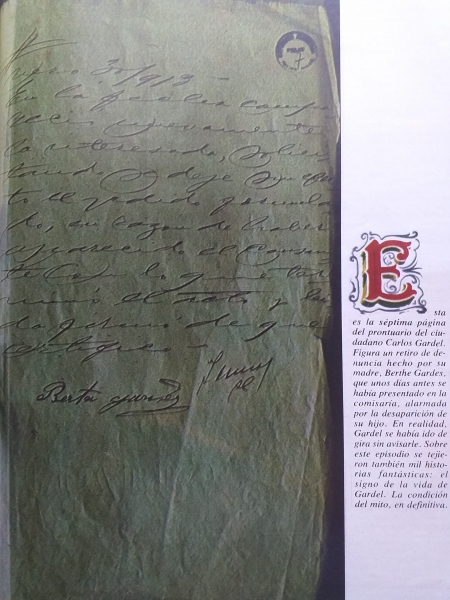 30/913 -
En la fecha compa
reció nuevamente
la interesada, solici
tando se deje sin efec
to el pedido formula
do, en razon de haber
aparecido el causan
te Con lo que ter
minó el acto y
firma de que
certifico. -
Berta Gardes
Esta
es la séptima página
del prontuario del ciu-
dadano Carlos Gardel.
Figura un retiro de de-
nuncia hecho por su
madre, Berthe Gardes,
que unos días antes se
había presentado en la
comisaría, alarmada
por la desaparición de
su hijo. En realidad,
Gardel se había ido de
gira sin avisarle. Sobre
este episodio se tejie-
ron también mil histo-
rias fantásticas: el
signo de la vida de
Gardel. La condición
del mito, en definitiva.